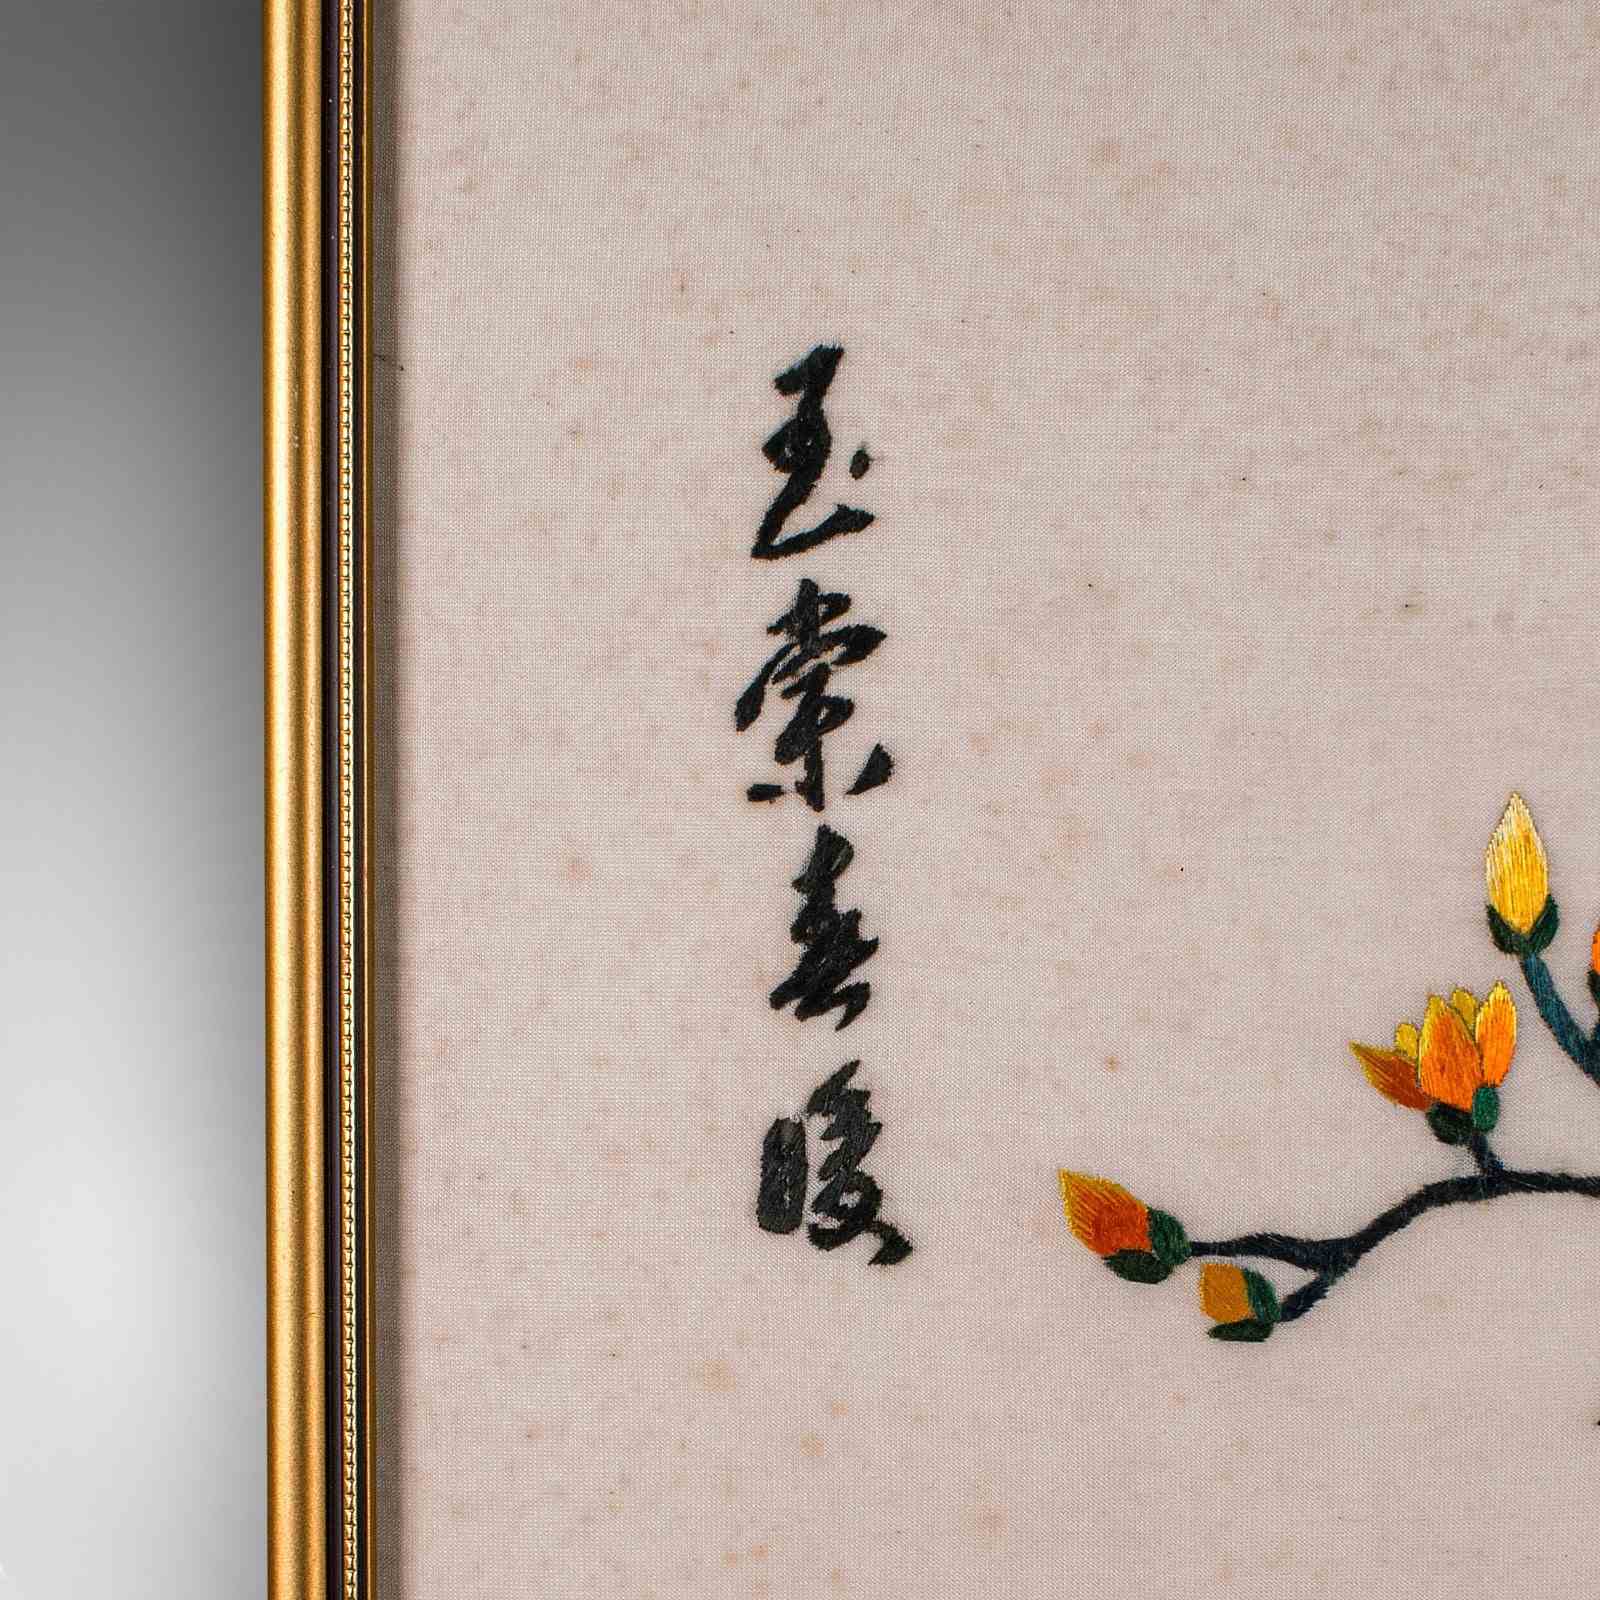 玉棠春暖